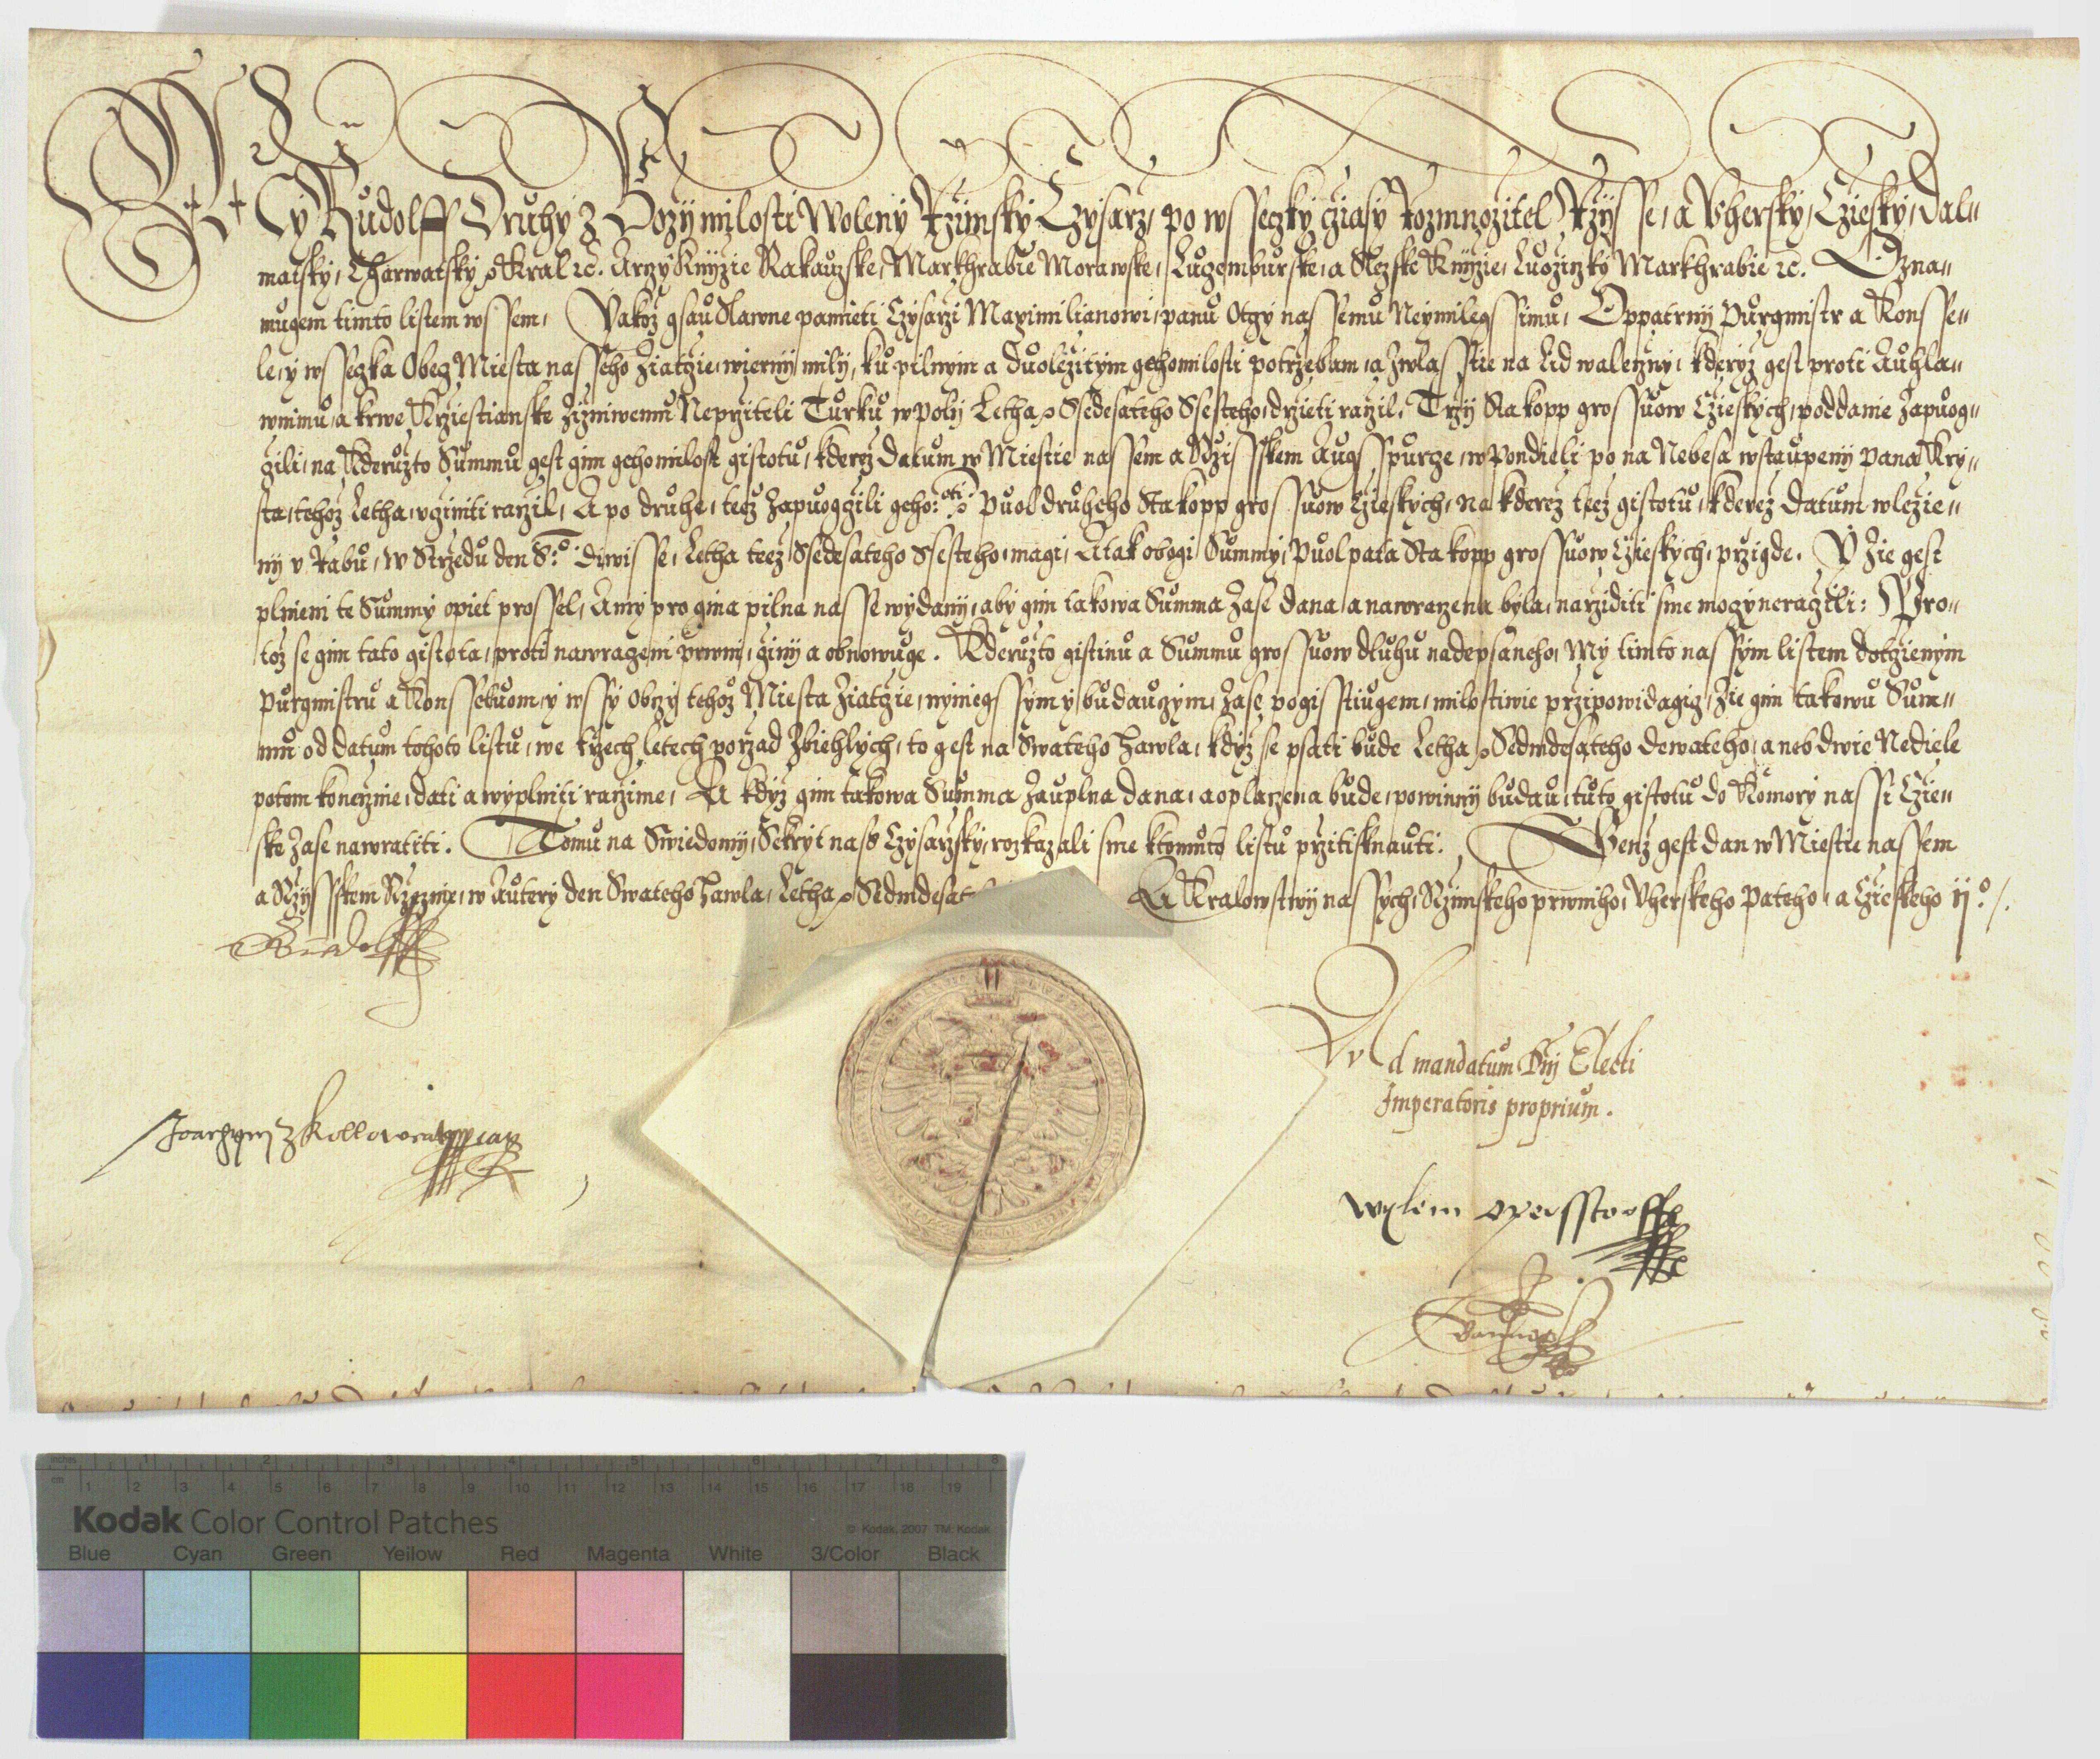 My Rudolff Druhy z Boży milosti Woleny Rzimsky Czysarz, po wsseczky cziasy rozmnożitel Rzysse, a Vhersky, Cziesky, Dal„
matsky, Charwatsky ꝛc Kral ꝛc. Arczy Knijzie Rakauzske, Markhrabie Morawske, Luczemburske, a Slezske Knijzie, Luożiczky Markhrabie ꝛc. Ozna„
mugem timto listem wssem, Yakoż gsau Slawne pamieti Czysarzi Maximilianowi, panu Otczy nassemu Neymilegssimu, Oppatrnij Purgmistr a Konsse„
le, y wssecka Obecz Miesta nasseho Żiatcze, wiernij milij, ku pilnym a Duoleżitym geho milosti potrzebam, a zwlasstie na Lid waleczny, kderyż gest proti Auhla„
wnimu, a krwe Krziestianske Żizniwemu Neprziteli Turku w poly Letha ꝛc Ssedesateho Ssesteho, drżieti raczil. Trzy Sta kopp grossuow Czieskych, poddanie Zapuog„
gili, na Kderużto Summu gest gim geho milost gistotu, kdereż Datum w Miestie nassem a Rzisskem Augsspurge, w Pondieli po na Nebesa wstaupeny Pana Kry„
sta, tehoż Letha, vginiti raczil, A po druhe, teeż Zapuoggili geho: oti: ꝛc Puol druheho Sta kopp grossuow Czieskych, na kdereż teeż gistotu, kdereż Datum w leżie„
ny v Rabu, w Strzedu den S:o Diwisse, Letha teeż Ssedesateho Ssesteho, magi, A tak obogi Summy, Puol pata Sta kopp grossuow Czieskych, przigde. Y Żie gest
plnieni te Summy opiet prossel, A my pro gina pilna nasse wydanij, aby gim takowa Summa Zase dana, a nawraczena byla, narziditi sme mocy neraczili: Pro„
toż se gim tato gistota, proti nawraczeni prwni, ginij a obnowuge. Kderużto gistinu a Summu grossuow dluhu nadepsaneho, My timto nassym listem dotczienym
Purgmistru a Konsseluom, y wssy Obczy tehoż Miesta Żiatcze, nyniegssym y buduczym, Zase pogisstiugem, milostiwie przipowidagicz, Żie gim takowu Sum„
mu od datum tohoto listu, we trzech letech porzad Zbiehlych, to gest na Swateho Hawla, kdyż se psati bude Letha ꝛc Sedmdesateho dewateho, a neb dwie Nediele
potom konecznie, dati a wyplniti raczime, A kdyż gim takowa Summa Zauplna dana, a oplaczena bude, powinny budau, tuto gistotu do Komory nassi Czie„
ske Zase nawratiti. Tomu na Swiedomij, Sekryt nass Czysarzsky, rozkazali sme k tomuto listu przitisknauti. Genż gest dan w Miestie nassem
a Rzysskem Rzeznie, w Autery den Swateho Hawla, Letha ꝛc Sedmdesat A Kralowstwij nassych, Rzimskeho prwniho, Vherskeho Pateho, a Czieskeho ij:o
Rudolff
Ad mandatum Dnj Electi
Imperatoris proprium.
Joachym z Kollowrat
Wylem Opersstorff